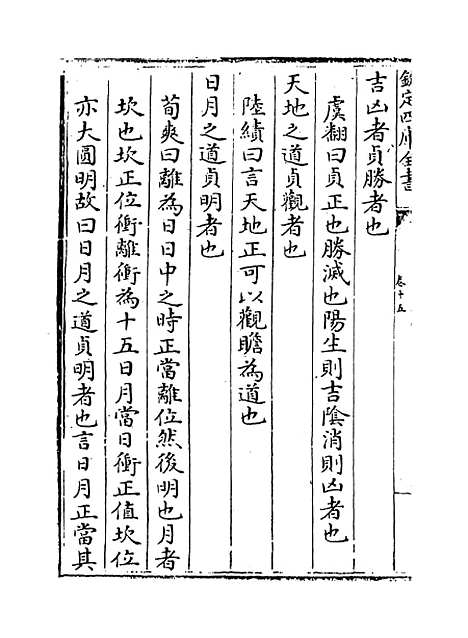 欽定四庫全書
卷十五
吉凶者貞勝者也
虞翻曰貞正也勝滅也陽生則吉陰消則凶者也
天地之道貞觀者也
陸績曰言天地正可以觀瞻為道也
日月之道貞明者也
荀爽曰離為日日中之時正當離位然後明也月者
坎也坎正位衝離衝為十五日月當日衝正值坎位
亦大圓明故曰日月之道貞明者也言日月正當其